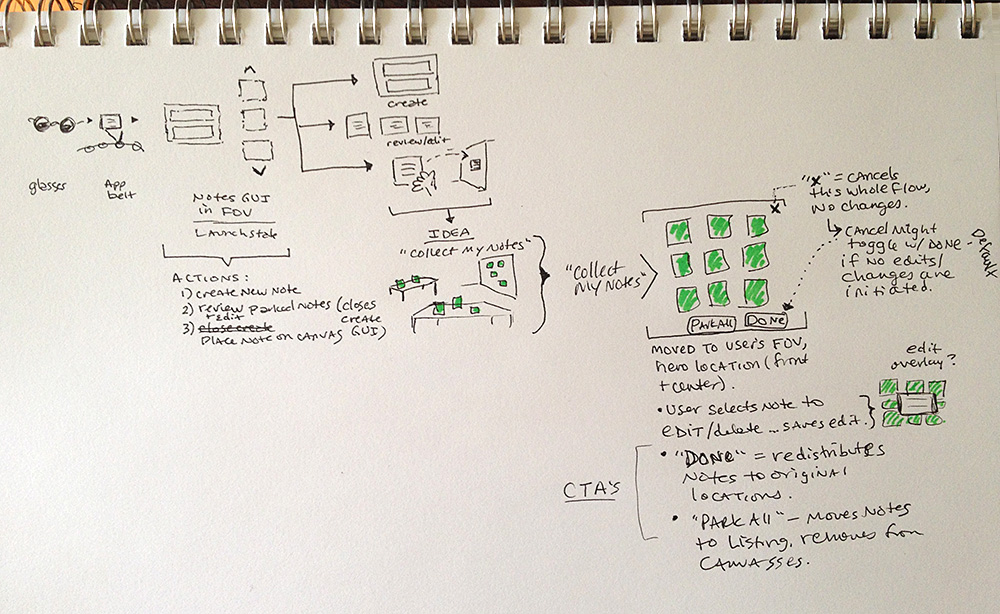 glasses
App
belt
Notes GUI
in FOV
Launch state
create
review/edit
IDEA
"collect my Notes"
ACTIONS:
1) create New Note
2) review parked Notes (closes
+ edit
create
GUI)
3) close create
Place Note on canvas
"collect
my Notes"
X
"X" = cancels
this whole flow,
no changes.
Cancel might
toggle w/ DONE -
Default
if no edits/
changes are
initiated.
Park All
Done
Moved to user's FOV,
hero location (front
+ center).
• User selects Note to
edit/delete ... saves edit.
edit
overlay?
CTA's
• "DONE" = redistributes
Notes to original
locations.
• "Park All" – moves Notes
to Listing, removes from
canvasses.